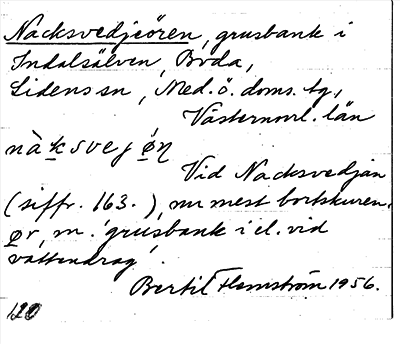 Nacksvedjeören, grusbank i
Indalsälven, Boda,
Lidens sn, Med. ö. doms. tg.,
Västernorrl. län
nàksvejǿn
Vid Nacksvedjan
(siffr. 163.), nu mest bortskuren.
ør, m. 'grusbank i el. vid
vattendrag'.
Bertil Flemström 1956.
120